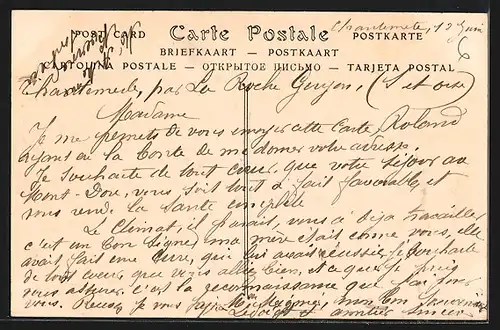 POST CARD Carte Postale POSTKARTE
BRIEFKAART - POSTKAART
CARTOLINA POSTALE - ОТКРЫТОЕ ПИСЬМО - TARJETA POSTAL
Chantemesle, 12 Juin
Chantemesle, par La Roche Guyon, (S et Oise)
Madame
Je me permets de vous envoyer cette Carte, Roland
ayant eu la bonté de me donner votre adresse.
Je souhaite de tout cœur que votre séjour au
Mont-Dore, vous soit tout à fait favorable, et
vous rende la santé complète
Le Climat, il parait, vous a déjà travaillée
c'est un bon signe, ma mère était comme vous, elle
avait fait une cure, qui lui avait réussie. Je souhaite
de tout cœur que vous allez bien, et ce que je puis
vous assurer, c'est la reconnaissance que j'ai pour
vous. Recevez
et amitiés sincères